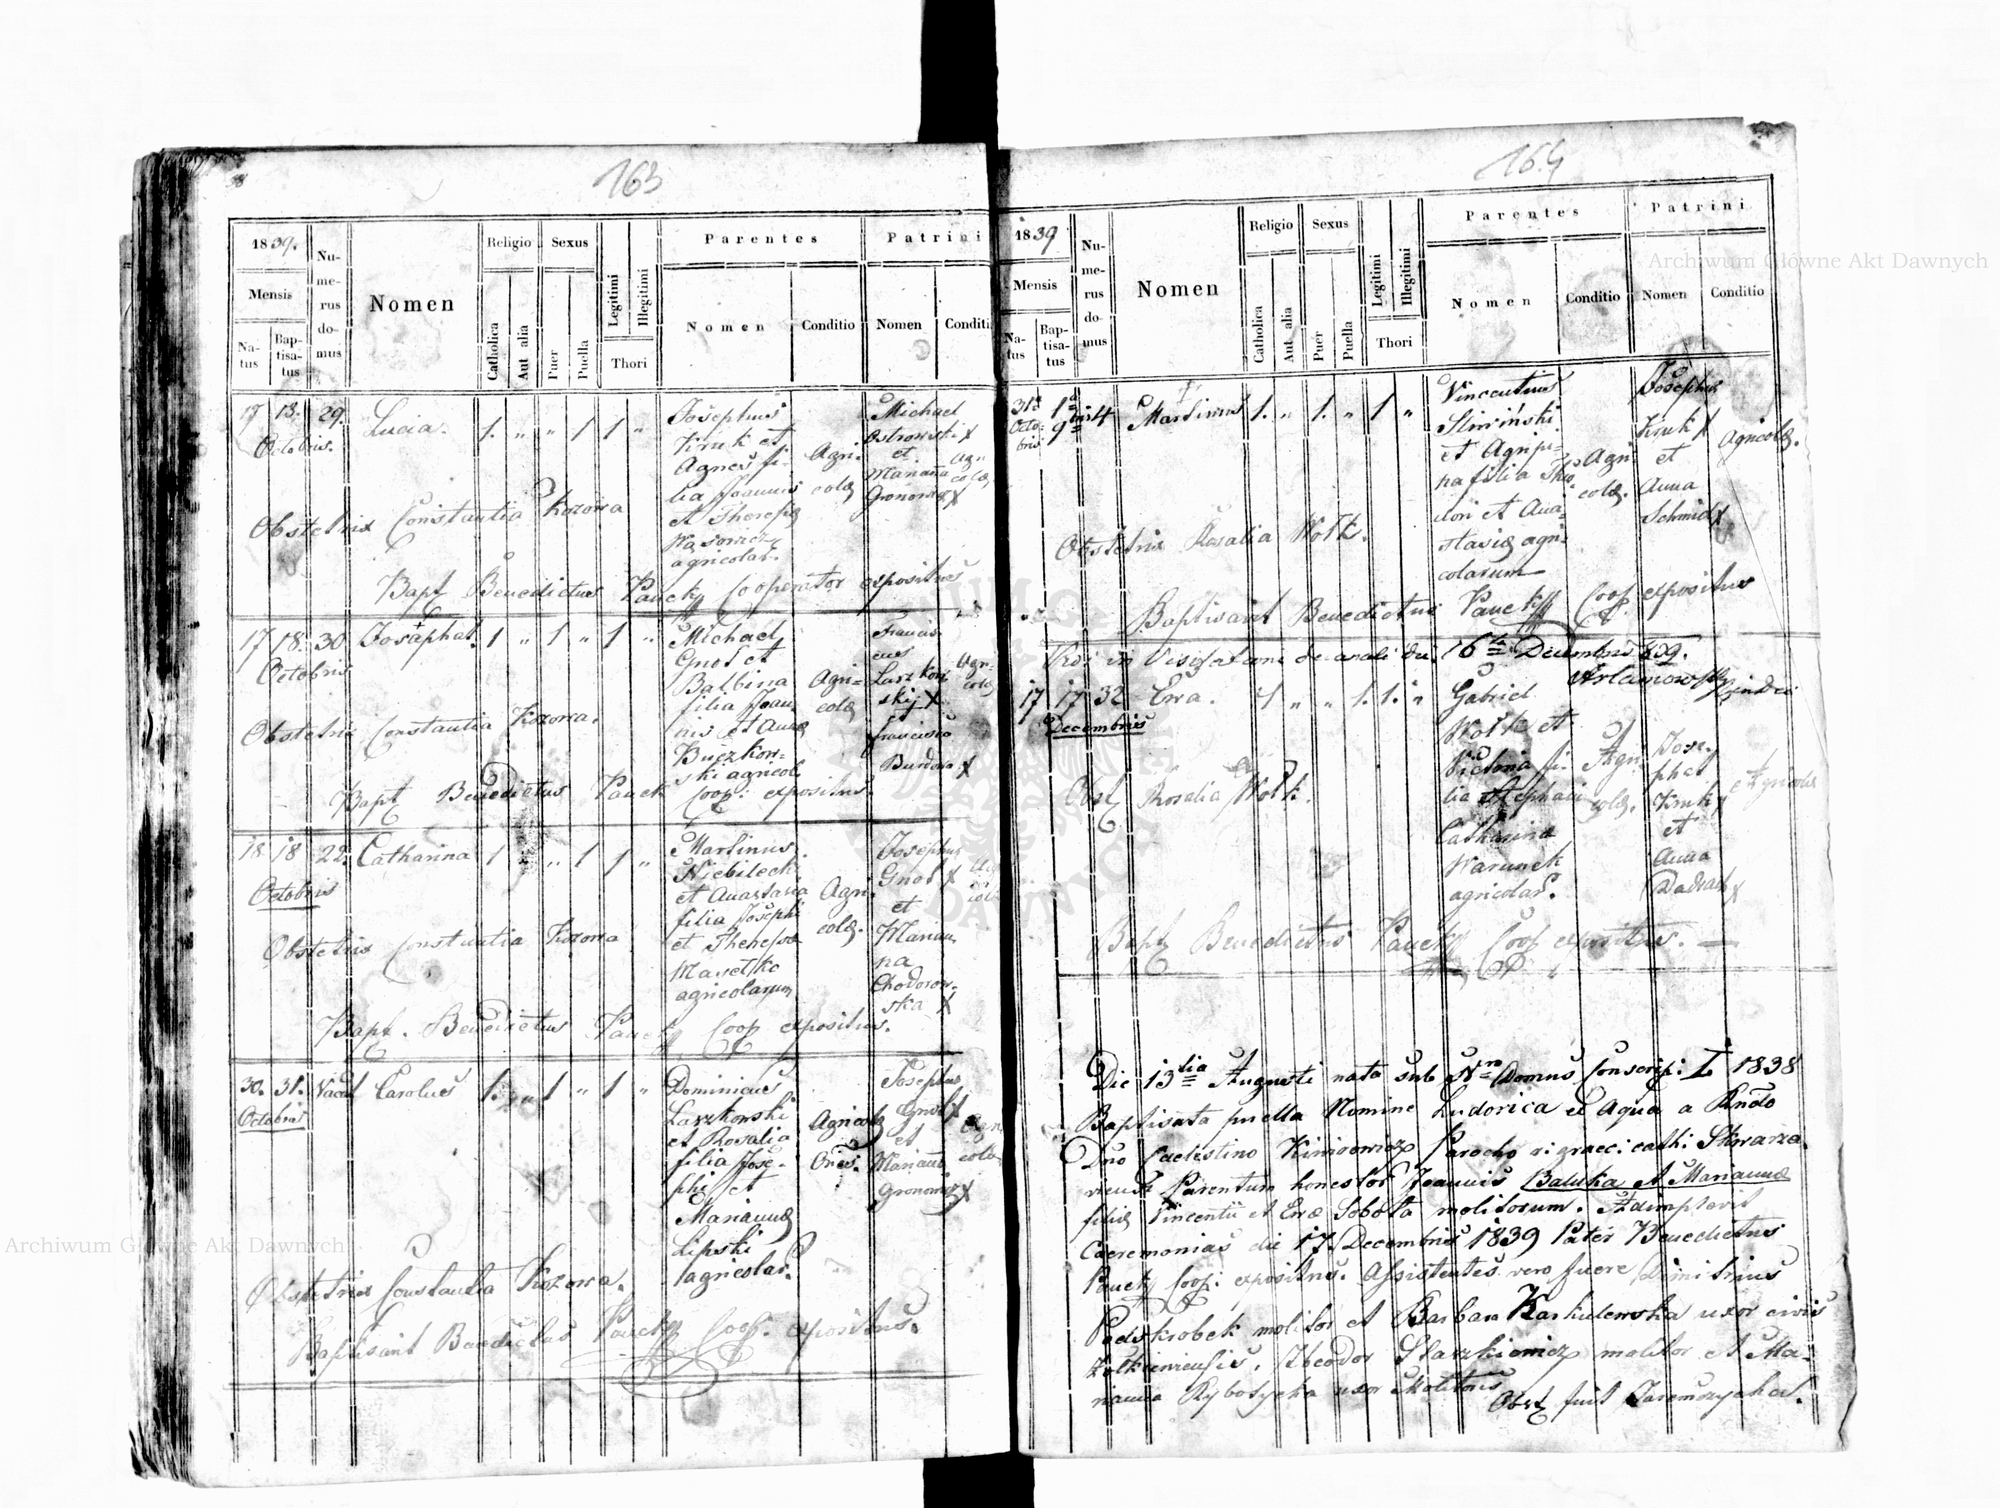 163
1839.
Mensis
Na-
tus
Bap-
tisa-
tus
Nu-
me-
rus
do-
mus
Nomen
Religio
Catholica
Aut alia
Sexus
Puer
Puella
Legitimi
Illegitimi
Thori
Parentes
Nomen
Conditio
Patrini
Nomen
Conditi
17 18. 29. Lucia. 1. " " 1 1 "
Octobris.
Josephus
Kruk et
Agnes fi-
lia Joannis
et Theresæ
Wąsowicz
agricolar.
Agri-
colæ
Michael
Ostrowski X
et
Marianna
X
Agri
colæ
Obstetrix Constantia Kozowa
Bapt Benedictus Pauck Cooperator expositus
17 18. 30 Josaphat. 1 " 1 " 1 "
Octobris
Michael
Gnot et
Balbina
filia Joan-
nis et Annæ
Buczkow-
ski agricol.
Agri-
colæ
Francis-
cus
Laszkow-
skij X
Francisca
X
Agri
colæ
Obstetrix Constantia Kozowa.
Bapt Benedictus Pauck Coop: expositus.
18 18 22. Catharina 1 " " 1 1 "
Octobris
Martinus
et Anastasia
filia Josephi
et Theresæ
agricolarum
Agri-
colæ.
Josephus
Gnot X
et
Marian-
na
Chodorow-
ska X
Obstetrix Constantia Kozowa
Bapt. Benedictus Pauck Coop expositus.
30. 31. Carolus 1. " 1 " 1 "
Octobris
Dominicus
Laszkowski
et Rosalia
filia Jose-
phi et
Mariannæ
Lipski
agricolar.
Agricolæ
Josephus
Gnot X
et
Mariana
X
Agri
colæ
Obstetrix Constantia Kozowa.
Baptisavit Benedictus Pauck Coop. expositus.
164
1839
Mensis
Na-
tus
Bap-
tisa-
tus
Nu-
me-
rus
do-
mus
Nomen
Religio
Catholica
Aut alia
Sexus
Puer
Puella
Legitimi
Illegitimi
Thori
Parentes
Nomen
Conditio
Patrini
Nomen
Conditio
31 1 4 Martinus 1. " 1. " 1 "
Octo-
bris
Vincentius
Sliwiński
et Agripi-
na filia Theo-
dori et Ana-
stasiæ agri-
colarum
Agri
colæ.
Josephus
Kruk X
et
Anna
Schmid X
Agricolæ.
Obstetrix Rosalia Wołk.
Baptisavit Benedictus Pauck Coop expositus
Vidi in Visitatione decanali die 16 Decembris 839.
17 17 32 Ewa. 1 " " 1. 1. "
Decembris
Gabriel
Wołk et
Victoria fi-
lia Stephani
Catharinæ
Warunek
agricolar.
Agri
colæ.
Jose-
phus
Kruk X
et
Anna
X
Agricolæ
Obst Rosalia Wołk.
Bapt Benedictus Pauck Coop expositus.
Die 13tia Augusti nata sub Nro Domus Conscrip: 1 1838
Baptisata puella Nomine Ludovica ex Aqua a Rndo
Dno Caelestino Parocho r: graeci: cath: Skwarza-
viensi Parentum honestor Joannis Baluka et Mariannæ
filiæ Vincentii et Evæ Sobota molitorum. Adimplevit
Caeremonias die 17. Decembris 1839 Pater Benedictus
Pauck Coop: expositus. Assistentes vero fuere Dimitrius
Podskrobek molitor et Barbara Karkulewska uxor civis
Zołkieviensis. Theodor Staszkiewicz molitor et Ma-
rianna Rybotycka uxor Molitoris
Obst fuit
Archiwum Główne Akt Dawnych
Archiwum Główne Akt Dawnych